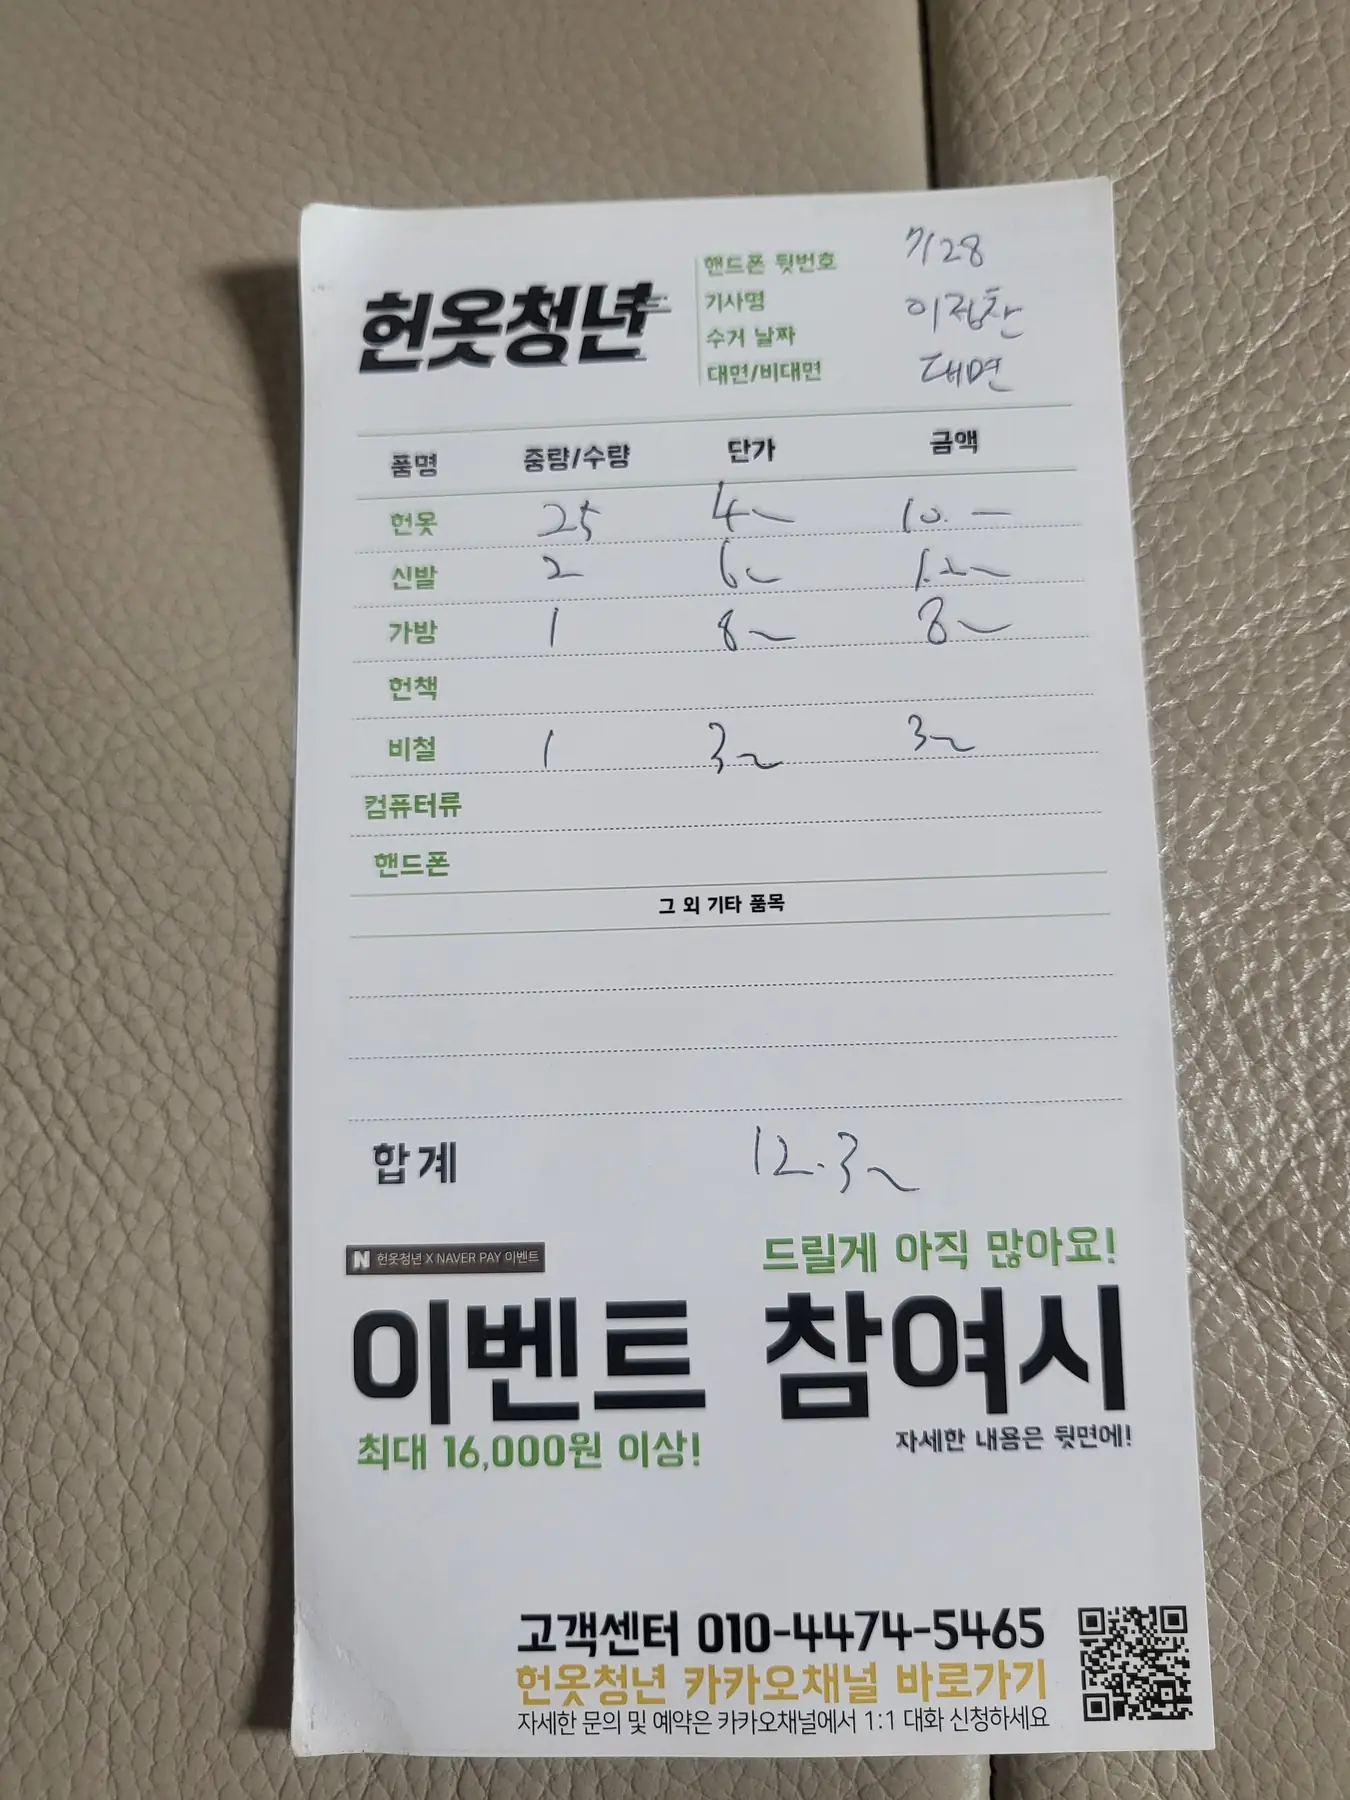 헌옷청년
핸드폰 뒷번호 7128
기사명
수거 날짜
대면/비대면 대면
품명 중량/수량 단가 금액
헌옷 25 4~ 10.—
신발 2 6~ 1.2~
가방 1 8~ 8~
헌책
비철 1 3~ 3~
컴퓨터류
핸드폰
그 외 기타 품목
합계 12.3~
N 헌옷청년 X NAVER PAY 이벤트
드릴게 아직 많아요!
이벤트 참여시
최대 16,000원 이상!
자세한 내용은 뒷면에!
고객센터 010-4474-5465
헌옷청년 카카오채널 바로가기
자세한 문의 및 예약은 카카오채널에서 1:1 대화 신청하세요